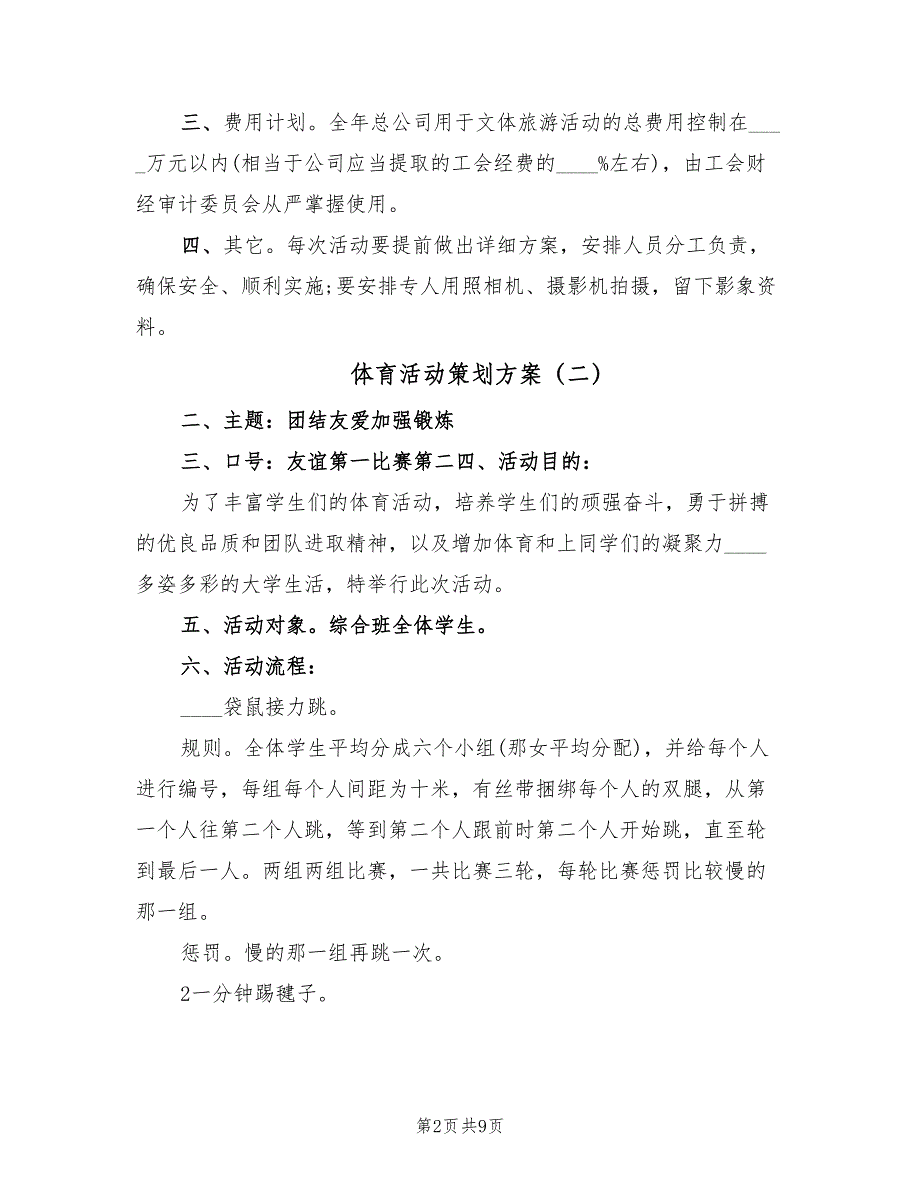 三、费用计划。全年总公司用于文体旅游活动的总费用控制在___
_万元以内(相当于公司应当提取的工会经费的____%左右)，由工会财
经审计委员会从严掌握使用。
四、其它。每次活动要提前做出详细方案，安排人员分工负责，
确保安全、顺利实施;要安排专人用照相机、摄影机拍摄，留下影象资
料。
体育活动策划方案（二）
二、主题：团结友爱加强锻炼
三、口号：友谊第一比赛第二四、活动目的：
为了丰富学生们的体育活动，培养学生们的顽强奋斗，勇于拼搏
的优良品质和团队进取精神，以及增加体育和上同学们的凝聚力____
多姿多彩的大学生活，特举行此次活动。
五、活动对象。综合班全体学生。
六、活动流程：
____袋鼠接力跳。
规则。全体学生平均分成六个小组(那女平均分配)，并给每个人
进行编号，每组每个人间距为十米，有丝带捆绑每个人的双腿，从第
一个人往第二个人跳，等到第二个人跟前时第二个人开始跳，直至轮
到最后一人。两组两组比赛，一共比赛三轮，每轮比赛惩罚比较慢的
那一组。
惩罚。慢的那一组再跳一次。
2一分钟踢毽子。
第2页共9页